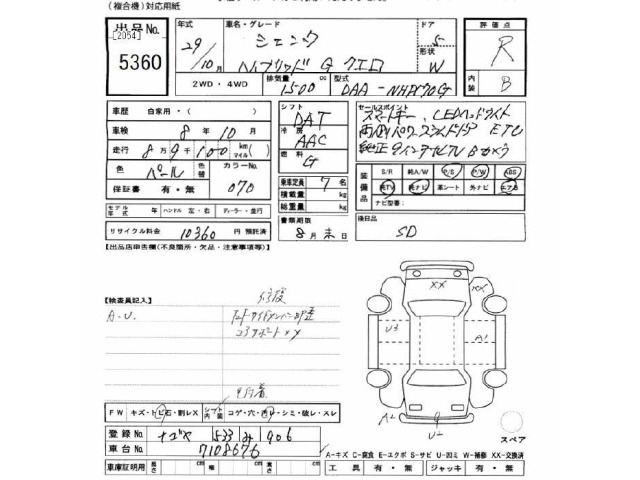 (複合機)対応用紙
出品No. [2054] 5360
年式 29/10月
車名・グレード シエンタ
ハイブリッド G クエロ
ドア 5
形状 W
2WD・4WD
排気量 1500 cc
型式 DAA-NHP170G
評価点 R
内装 B
車歴 自家用・( )
車検 8年10月
走行 8万9千100 km(マイル)
色 パール
色替
カラーNo. 070
保証書 有・無
モデル年式 年
ハンドル 左・右
ディーラー・並行
リサイクル料金 10360円 預託済
シフト DAT
冷房 AAC
燃料 G
乗車定員 7名
積載量 kg
総重量 kg
書類期限 8月末日
セールスポイント
スマートキー、LEDヘッドライト
両側パワースライドドア ETC
純正9インチナビTV Bカメラ
装備品 S/R 純A/W P/S P/W ABS
純TV 純ナビ 革シート 外ナビ エアB
ナビ型番:
後日品 SD
【出品店申告欄(不良箇所・欠品・注意事項等)】
【検査員記入】
修復
A・U
コアサポートXX
FW キズ・トビ石・割レX
シフト内装 コゲ・穴・汚レ・シミ・破レ・スレ
登録No. ナゴヤ 533 み 906
車台No. 7108676
車庫証明用 長さ cm 幅 cm 高さ cm
XX
XX
U3
A1
A2
U2
スペア
A-キズ C-腐食 E-エクボ S-サビ U-凹ミ W-補修 XX-交換済
工具 有・無
ジャッキ 有・無